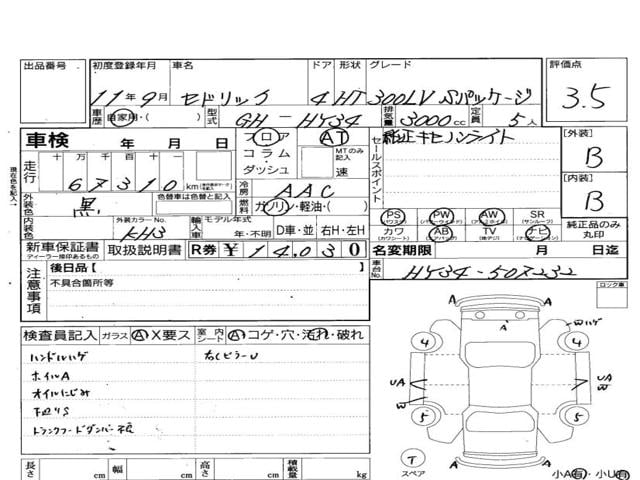 出品番号 初度登録年月 車名 ドア 形状 グレード 評価点
11年9月 セドリック 4 HT 300LV Sパッケージ 3.5
車歴 自家用・( ) 型式 GH－HY34 排気量 3000cc 定員 5人
車検 年 月 日 フロア AT 純正キセノンライト [外装]
走行 十 万 千 百 十 一 コラム MTのみ記入 セールスポイント B
67310 km ダッシュ 速
現在色を記入 外装色 黒 色替車は色替と記入 冷房 AAC [内装]
燃料 ガソリン・軽油・( ) B
内装色 外装カラーNo. KH3 輸入車 モデル年式 年・不明 D車・並 右H・左H
PS (パワステ) PW (パワーウィンド) AW (アルミホイル) SR (サンルーフ)
カワ (カワシート) AB (エアバック) TV (地デジ) ナビ (ナビゲーション) 純正品のみ丸印
新車保証書 ディーラー捺印あるもの 取扱説明書 R券 ¥14,030 名変期限 月 日迄
注意事項 後日品[ ] 車台No. HY34-507232
不具合箇所等 ロック車
検査員記入 ガラス A X要ス 室内シート A コゲ・穴・汚れ・破れ
ハンドルハゲ 右CピラーU
ホイルA
オイルにじみ
下廻りS
トランクフードダンパー不良
A A A Wハゲ
4 4
UA UA
W W
5 5
T スペア A A
長さ cm 幅 cm 高さ cm 積載量 kg 小A有・小U有